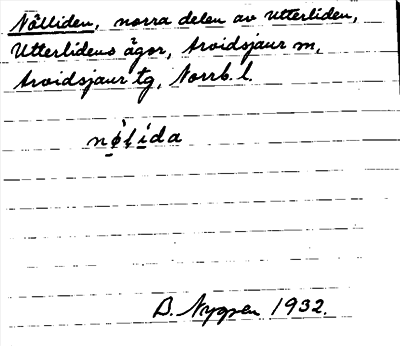 Nålliden, norra delen av Utterliden,
Utterlidens ägor, Arvidsjaur m,
Arvidsjaur tg, Norrb. l.
nø̀lida
B. Nygren 1932.